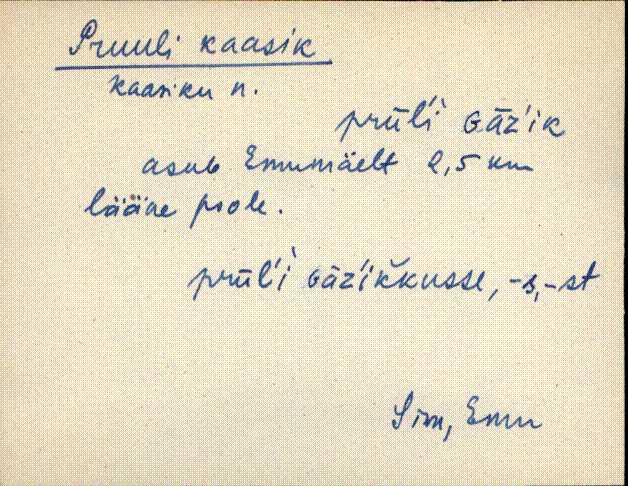 Pruuli kaasik
kaasiku n.
prūl'ì Gāz'ik
asub Emumäelt 2,5 km
lääne poole.
prūl'ì Gāz'ikkusse, -s, -st
Sim, Emu